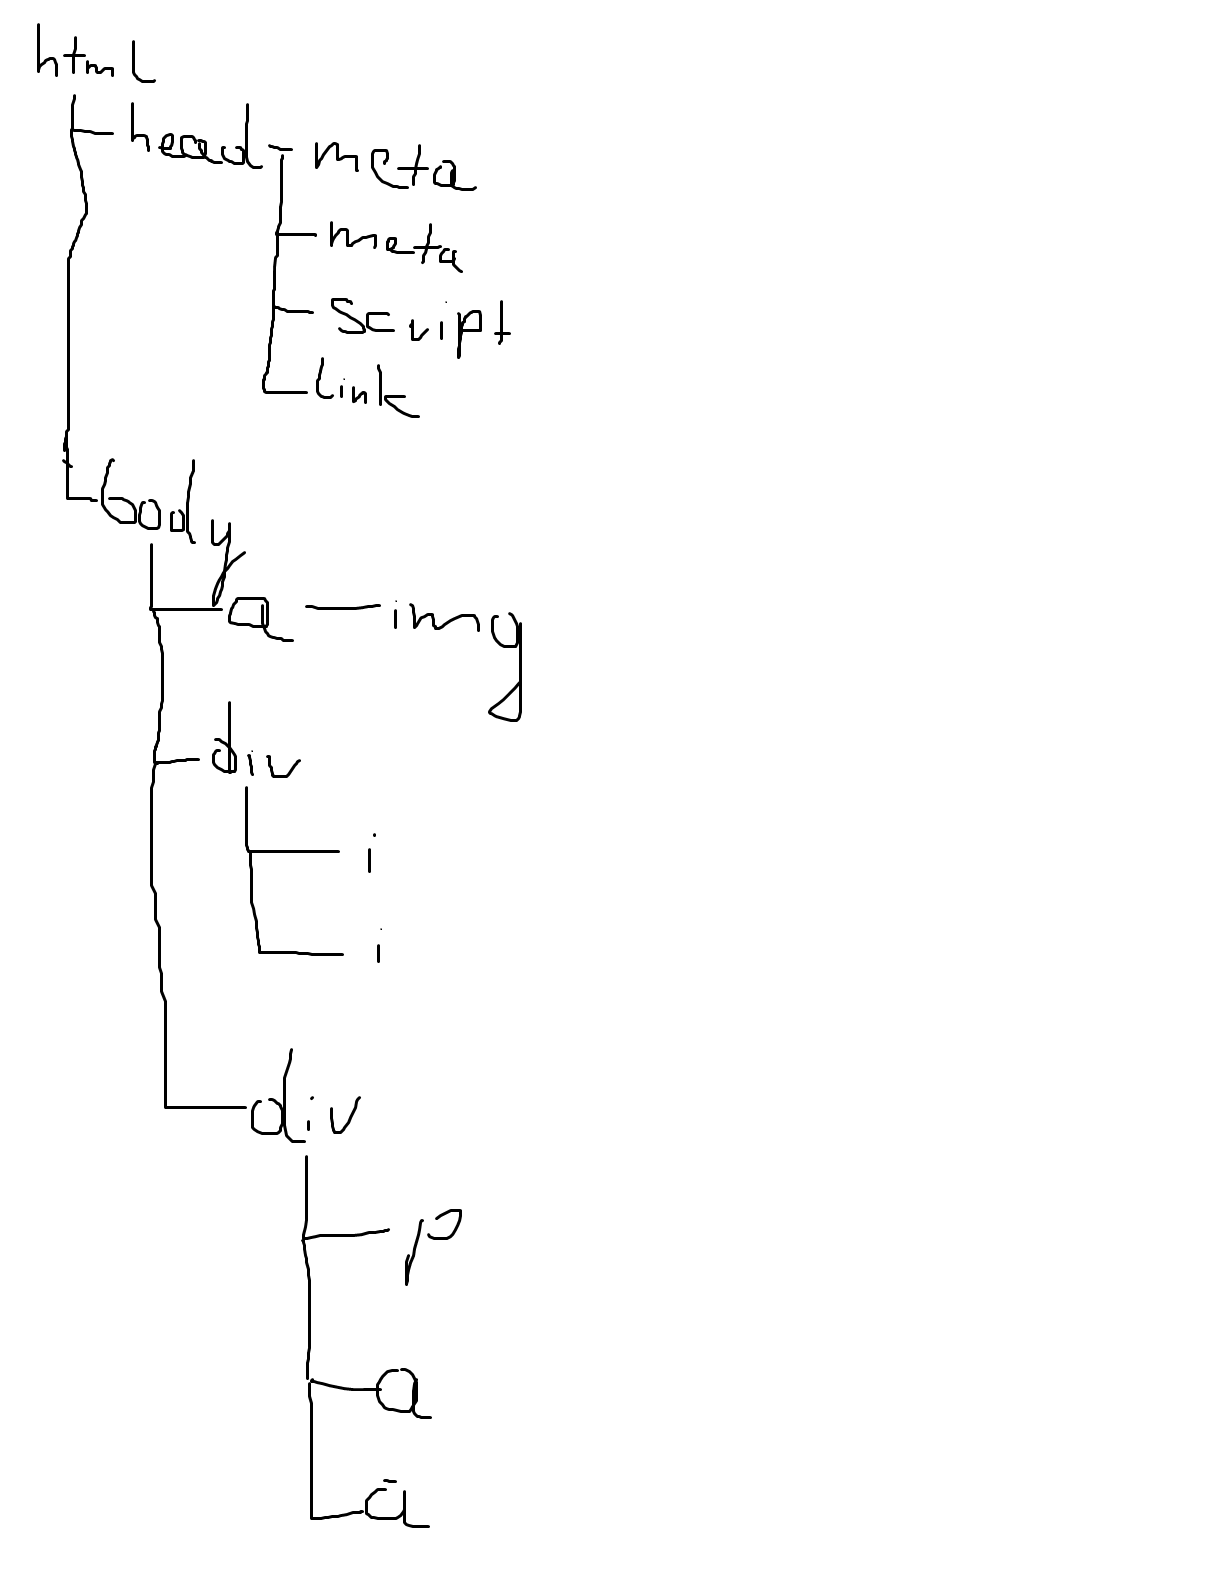 html
head meta
meta
script
link
body
a img
div
i
i
div
p
a
a